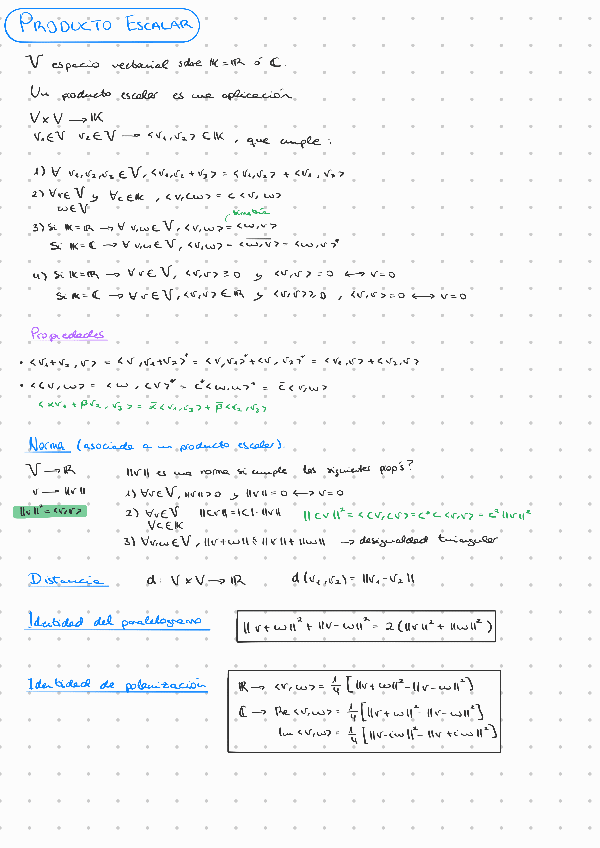 PRODUCTO ESCALAR
V espacio vectorial sobre K = R ó C.
Un producto escalar es una aplicación
V x V → K
v₁ ∈ V v₂ ∈ V → <v₁, v₂> ∈ K , que cumple:
1) ∀ v₁, v₂, v₃ ∈ V, <v₁, v₂ + v₃> = <v₁, v₂> + <v₁, v₃>
2) ∀v∈V y ∀c∈K , <v, cw> = c <v, w>
w∈V
simetría
3) Si K = R → ∀ v,w ∈ V, <v,w> = <w,v>
Si K = C → ∀ v,w ∈ V, <v,w> = \overline{<w,v>} = <w,v>*
4) Si K = R → ∀ v ∈ V, <v,v> ≥ 0 y <v,v> = 0 ↔ v = 0
Si K = C → ∀ v ∈ V, <v,v> ∈ R y <v,v> ≥ 0 , <v,v> = 0 ↔ v = 0
Propiedades
• <v₁+v₂, v> = <v, v₁+v₂>* = <v, v₁>* + <v, v₂>* = <v₁, v> + <v₂, v>
• <cv, w> = <w, cv>* = c* <w, v>* = c̄ <v, w>
<αv₁ + βv₂, v₃> = ᾱ <v₁, v₃> + β̄ <v₂, v₃>
Norma (asociada a un producto escalar)
V → R ||v|| es una norma si cumple las siguientes prop's?
v → ||v|| 1) ∀v∈V, ||v|| ≥ 0 y ||v|| = 0 ↔ v = 0
||v||² = <v,v> 2) ∀v∈V ||cv|| = |c|·||v|| ||cv||² = <cv, cv> = c* c <v,v> = c² ||v||²
∀c∈K
3) ∀v,w ∈ V, ||v+w|| ≤ ||v|| + ||w|| → desigualdad triangular
Distancia d: V x V → R d(v₁, v₂) = ||v₁ - v₂||
Identidad del paralelogramo ||v+w||² + ||v-w||² = 2(||v||² + ||w||²)
Identidad de polarización R → <v,w> = 1/4 [||v+w||² - ||v-w||²]
C → Re <v,w> = 1/4 [||v+w||² - ||v-w||²]
Im <v,w> = 1/4 [||v-iw||² - ||v+iw||²]